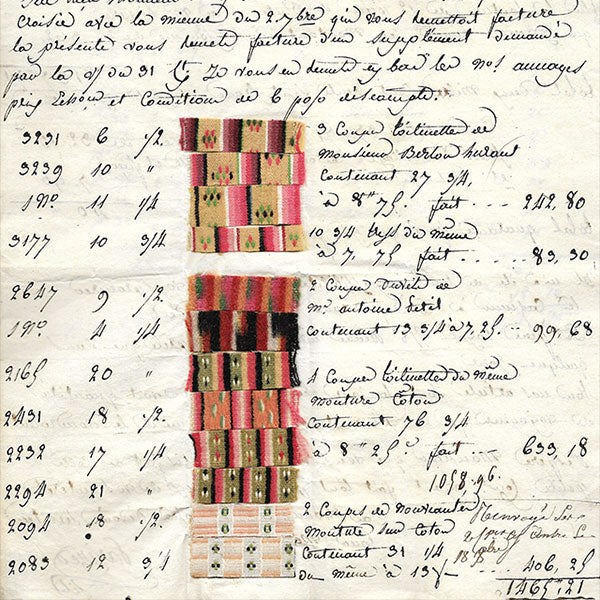 croisée avec la mienne du 2. 7bre qui vous remettoit facture
la présente vous remet facture d'un supplement demandé
par la v/ du 31 Ct Je vous en remet ey bas les nos. aunages
prix et Condition de 6 p% d'escompte.
3231 6 1/2.
3239 10 "
1 No. 11 1/4
3177 10 3/4
3 Coupes toilinettes de
Monsieur Berton
Contenant 27 3/4,
à 8" 75. fait 242, 80
10 3/4 du même
à 7, 75 fait 83, 30
2647 9 1/2
1 No. 4 1/4
2 Coupes de
Mr. antoine Petit
Contenant 13 3/4 à 7, 25. 99, 68
2165 20 "
2431 18 1/2.
2232 17 1/4
2294 21 "
4 Coupes toilinettes du même
monture Coton
Contenant 76 3/4
à 8" 25 fait 633, 18
1058, 96.
2094 18 1/2.
2083 12 3/4
2 Coupes de nouveauté
monture sur Coton
Contenant 31 1/4
du même à 13 406, 25
1465" 21